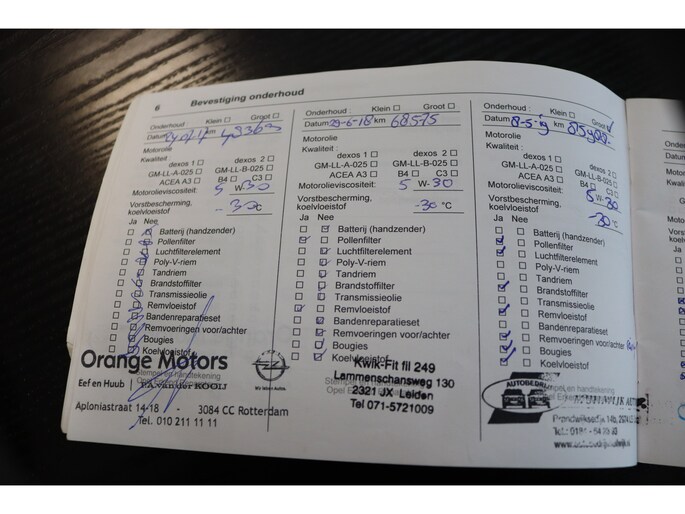 6 Bevestiging onderhoud
Onderhoud : Klein Groot
Datum km
Motorolie
Kwaliteit :
dexos 1 dexos 2
GM-LL-A-025 GM-LL-B-025
ACEA A3 B4 C3
Motorolieviscositeit: 5 W-30
Vorstbescherming,
koelvloeistof -30°C
Ja Nee
Batterij (handzender)
Pollenfilter
Luchtfilterelement
Poly-V-riem
Tandriem
Brandstoffilter
Transmissieolie
Remvloeistof
Bandenreparatieset
Remvoeringen voor/achter
Bougies
Koelvloeistof
Stempel en handtekening
Orange Motors
Eef en Huub
Aploniastraat 14-18 3084 CC Rotterdam
Tel. 010 211 11 11
Onderhoud : Klein Groot
Datum 29-6-18 km 68575
Motorolie
Kwaliteit :
dexos 1 dexos 2
GM-LL-A-025 GM-LL-B-025
ACEA A3 B4 C3
Motorolieviscositeit: 5 W-30
Vorstbescherming,
koelvloeistof -30°C
Ja Nee
Batterij (handzender)
Pollenfilter
Luchtfilterelement
Poly-V-riem
Tandriem
Brandstoffilter
Transmissieolie
Remvloeistof
Bandenreparatieset
Remvoeringen voor/achter
Bougies
Koelvloeistof
Kwik-Fit fil 249
Lammenschansweg 130
2321 JX Leiden
Tel 071-5721009
Onderhoud : Klein Groot
Datum 8-5-19 km
Motorolie
Kwaliteit :
dexos 1 dexos 2
GM-LL-A-025 GM-LL-B-025
ACEA A3 B4 C3
Motorolieviscositeit: 5 W-30
Vorstbescherming,
koelvloeistof -30°C
Ja Nee
Batterij (handzender)
Pollenfilter
Luchtfilterelement
Poly-V-riem
Tandriem
Brandstoffilter
Transmissieolie
Remvloeistof
Bandenreparatieset
Remvoeringen voor/achter
Bougies
Koelvloeistof
en handtekening
AUTOBEDRIJF